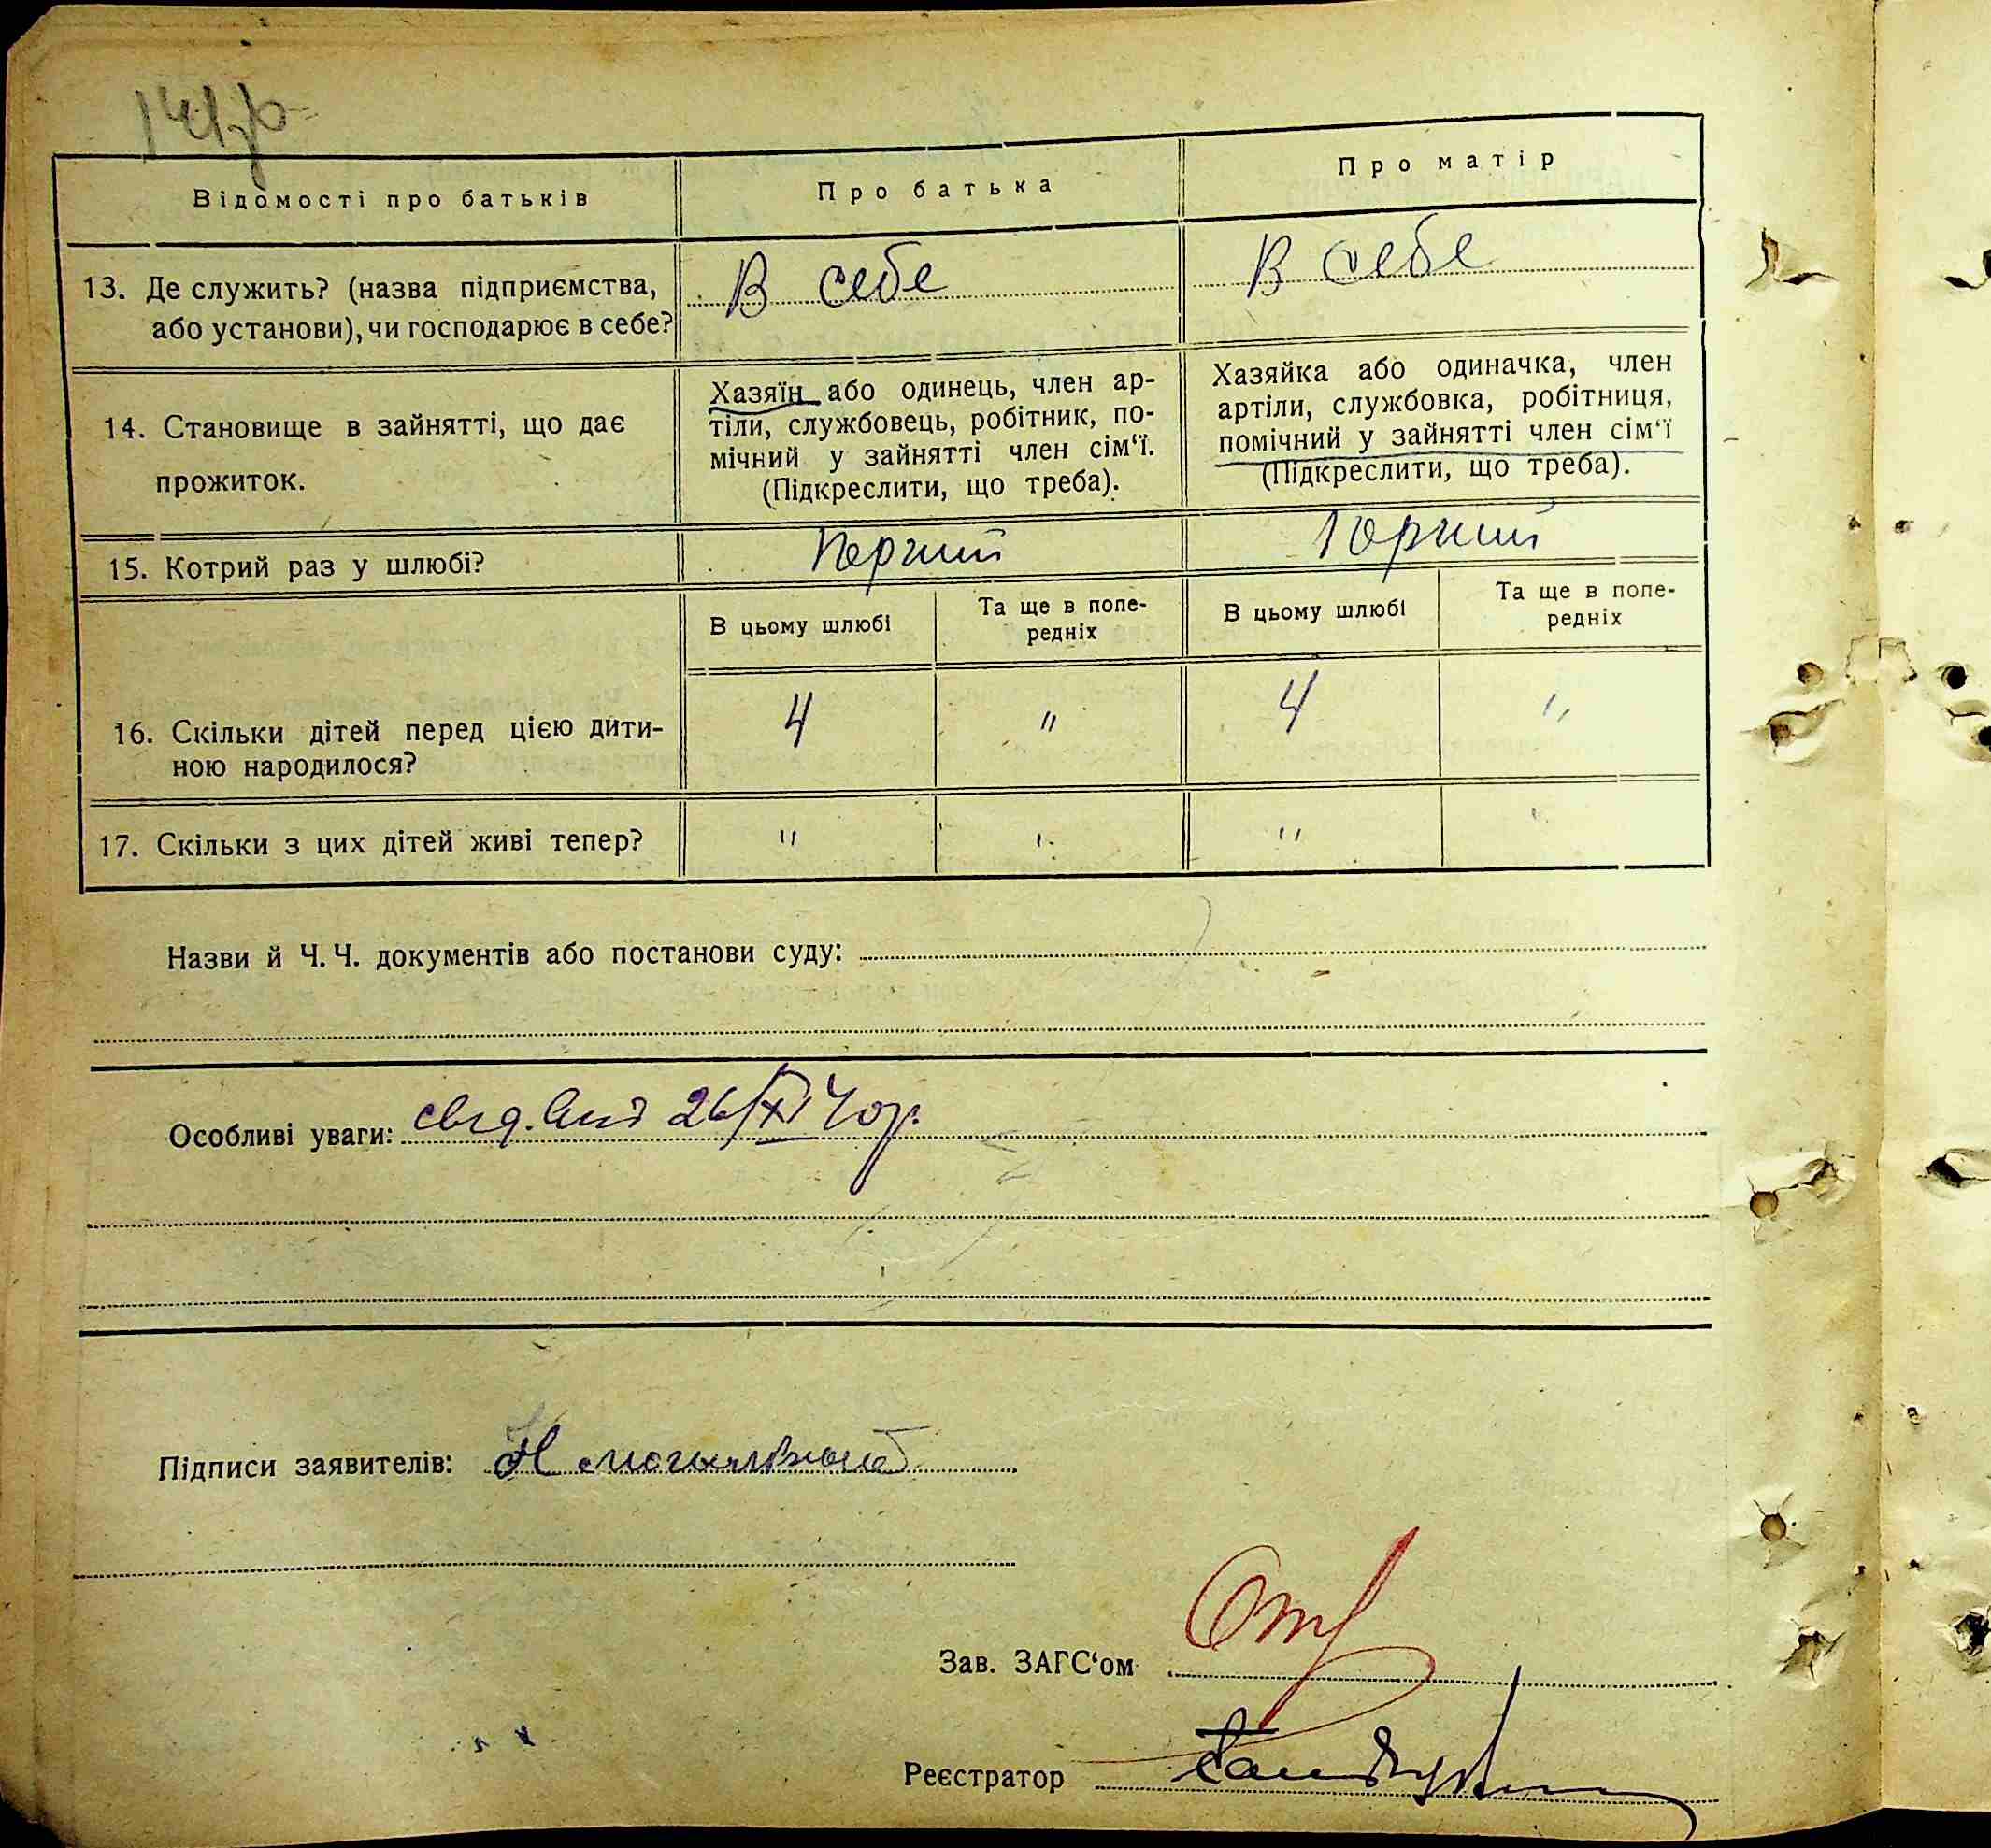 Відомості про батьків
Про батька
Про матір
13. Де служить? (назва підприємства,
або установи), чи господарює в себе?
В себе
В себе
14. Становище в зайнятті, що дає
прожиток.
Хазяїн або одинець, член ар-
тіли, службовець, робітник, по-
мічний у зайнятті член сім‘ї.
(Підкреслити, що треба).
Хазяйка або одиначка, член
артіли, службовка, робітниця,
помічний у зайнятті член сім‘ї
(Підкреслити, що треба).
15. Котрий раз у шлюбі?
Перший
Перший
В цьому шлюбі
Та ще в попе-
редніх
В цьому шлюбі
Та ще в попе-
редніх
16. Скільки дітей перед цією дити-
ною народилося?
4 " 4 "
17. Скільки з цих дітей живі тепер?
" " " "
Назви й Ч. Ч. документів або постанови суду:
Особливі уваги: 26/XI 40р.
Підписи заявителів:
Зав. ЗАГС‘ом
Реєстратор